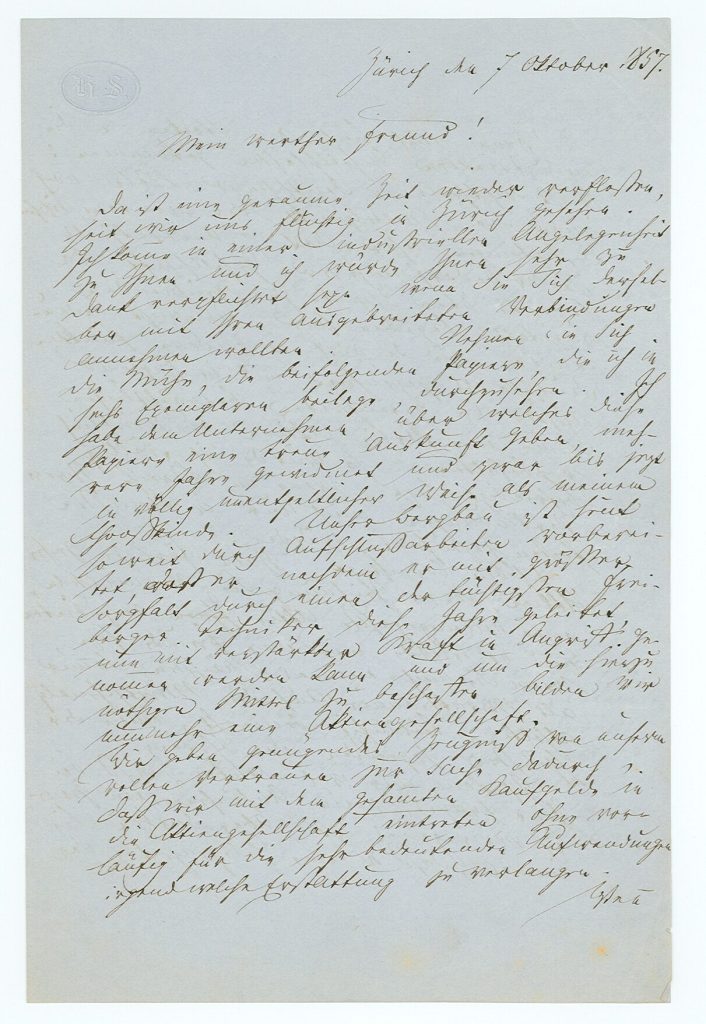 H S
Zürich den 7 Oktober 1857.
Mein werther Freund!
Da ist eine geraume Zeit wieder verflossen,
seit wir uns flüchtig in Zürich gesehen.
Ich komme in einer industriellen Angelegenheit
zu Ihnen und ich würde Ihnen sehr zu
Dank verpflichtet seyn wenn Sie sich dersel-
ben mit Ihren ausgebreiteten Verbindungen
annehmen wollten. Nehmen Sie sich
die Mühe, die beifolgenden Papiere, die ich in
sechs Exemplaren beilege, durchzusehen. Ich
habe dem Unternehmen über welches diese
Papiere eine treue Auskunft geben, meh-
rere Jahre gewidmet und zwar bis jezt
in völlig unentgeltlicher Weise als meinem
Schooßkinde. Unser Bergbau ist heute
soweit durch Aufschlußarbeiten vorberei-
tet, daß er nachdem er mit größter
Sorgfalt durch einen der tüchtigsten Frei-
berger Techniker diese Jahre geleitet,
nun mit verstärkter Kraft in Angriff ge-
nommen werden kann und um die hierzu
nöthigen Mittel zu beschaffen bilden wir
nunmehr eine Aktiengesellschaft.
Wir geben genügendes Zeugniß von unserem
vollen Vertrauen zur Sache dadurch,
daß wir mit dem gesammten Kaufgelde in
die Aktiengesellschaft eintreten ohne vor-
läufig für die sehr bedeutenden Aufwendungen
irgend welche Erstattung zu verlangen.